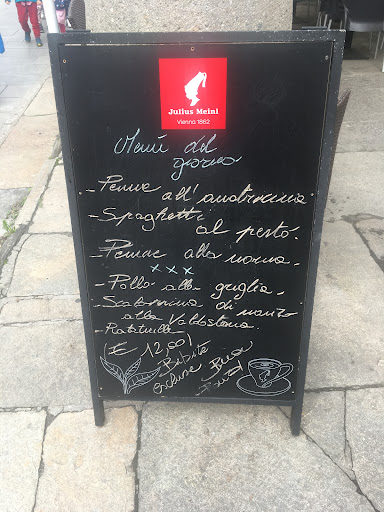 Julius Meinl
Vienna 1862
Menù del
giorno
- Penne all'amatriciana
- Spaghetti
al pesto.
- Penne alla norma.
x x x
- Pollo alla griglia.
- Scaloppina di manzo
alla Valdostana.
- Ratatuille
(€ 12,00)
Bibite
escluse